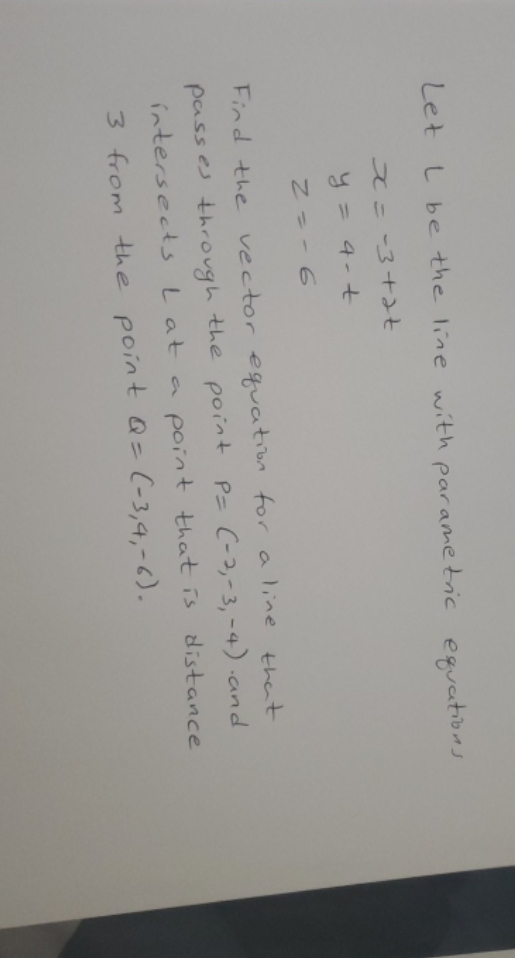 Let L be the line with parametric equations
x = -3 + 2t
y = 4 - t
z = - 6
Find the vector equation for a line that
passes through the point P= (-2,-3,-4) .and
intersects L at a point that is distance
3 from the point Q = (-3,4,-6).